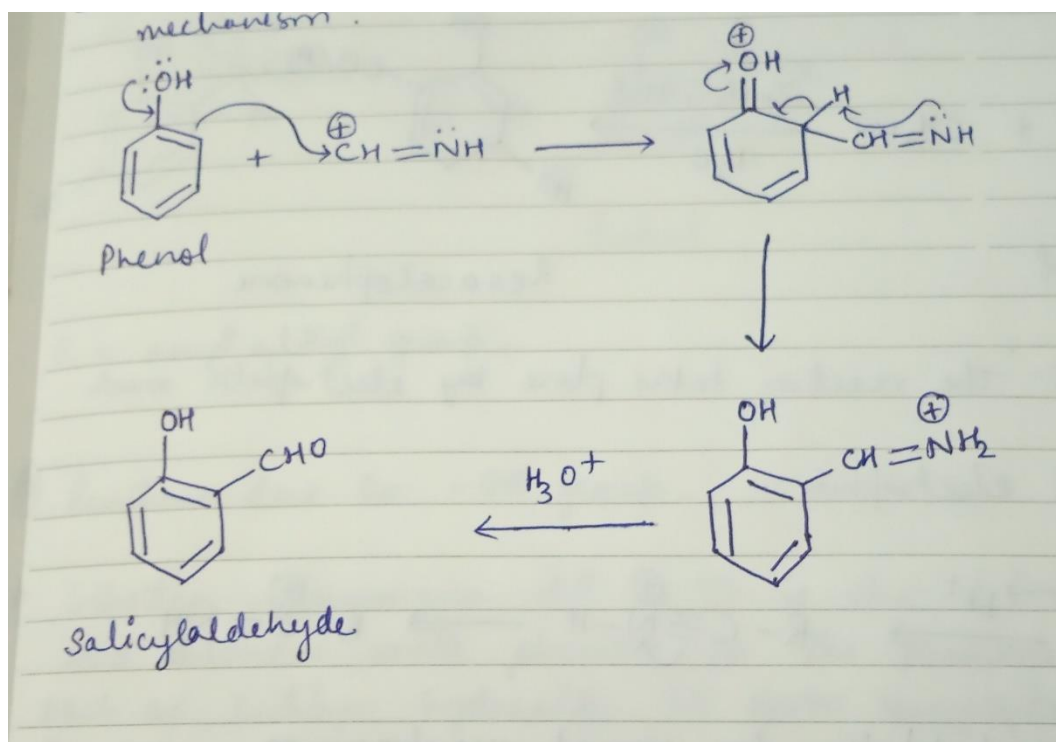 mechanism.
:ÖH
⊕
OH
H
+
⊕
CH = N̈H
CH = N̈H
Phenol
OH
CHO
H3O+
OH
⊕
CH = NH2
Salicylaldehyde